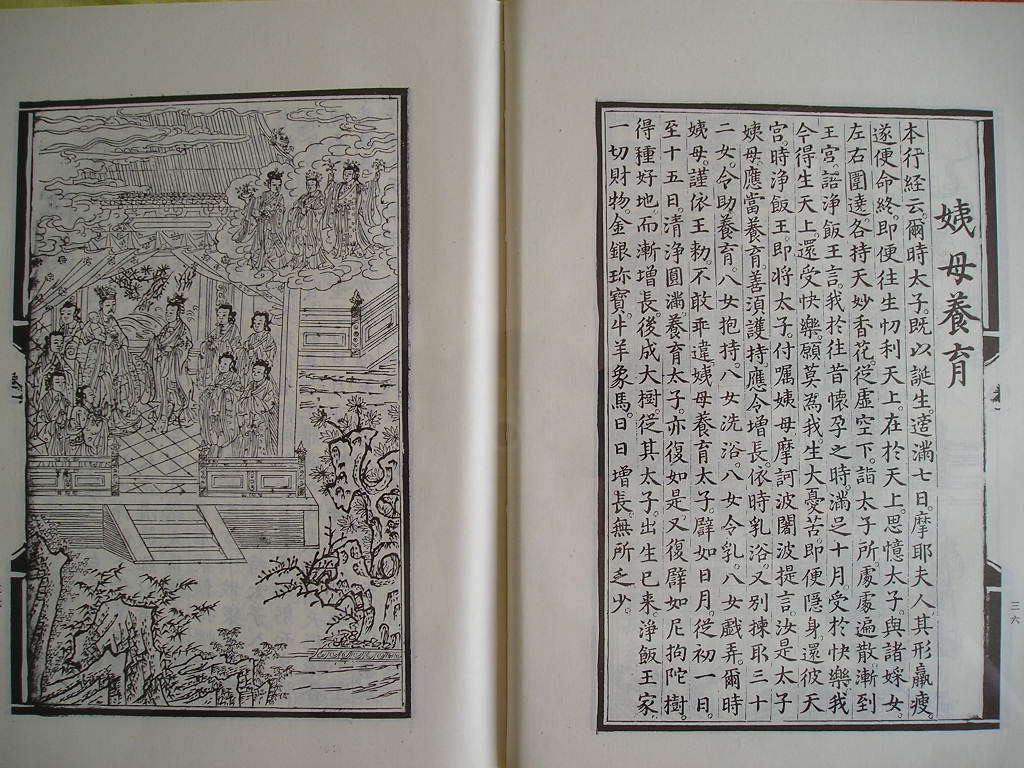 姨母養育
本行経云爾時太子既以誕生。適滿七日。摩耶夫人其形羸瘦。
遂便命終。即便往生忉利天上。在於天上。思憶太子。與諸婇女。
左右圍遶各持天妙香花。從虛空下。詣太子所。處處遍散。漸到
王宮。語淨飯王言。我於往昔懷孕之時。滿足十月。受於快樂。我
今得生天上。還受快樂。願莫為我。生大憂苦。即便隱身。還彼天
宮。時淨飯王。即將太子付囑姨母摩訶波闍波提言。汝是太子
姨母。應當養育。善須護持。應令增長。依時乳浴。又別揀取三十
二女。令助養育。八女抱持。八女洗浴。八女令乳。八女戲弄。爾時
姨母。謹依王勑不敢乖違。姨母養育太子。辟如日月。從初一日。
至十五日清淨圓滿。養育太子。亦復如是。又復辟如尼拘陀樹。
得種好地而漸增長。後成大樹。從其太子。出生已来。淨飯王家。
一切財物。金銀珎寶。牛羊象馬。日日增長。無所乏少。
三六